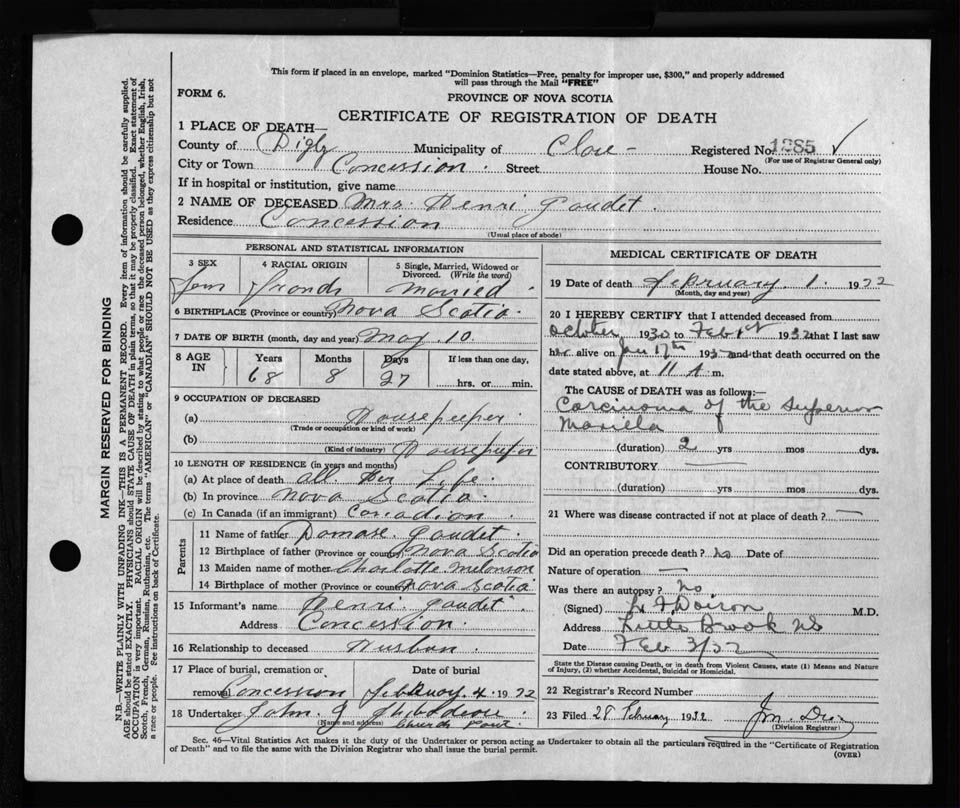 This form if placed in an envelope, marked "Dominion Statistics—Free, penalty for improper use, $300," and properly addressed
will pass through the Mail "FREE"
FORM 6.
PROVINCE OF NOVA SCOTIA
CERTIFICATE OF REGISTRATION OF DEATH
1 PLACE OF DEATH—
County of Digby Municipality of Clare - Registered No. 1285 ✓
(For use of Registrar General only)
City or Town Concession. Street House No.
If in hospital or institution, give name
2 NAME OF DECEASED Mrs. Henri Gaudet.
Residence Concession
(Usual place of abode)
PERSONAL AND STATISTICAL INFORMATION
3 SEX
4 RACIAL ORIGIN
5 Single, Married, Widowed or
Divorced. (Write the word)
Fem French Married.
6 BIRTHPLACE (Province or country) Nova Scotia.
7 DATE OF BIRTH (month, day and year) May 10.
8 AGE
IN
Years Months Days If less than one day,
68 8 27 hrs. or min.
9 OCCUPATION OF DECEASED
(a) Housekeeper.
(Trade or occupation or kind of work)
(b) Housekeeper
(Kind of industry)
10 LENGTH OF RESIDENCE (in years and months)
(a) At place of death all her Life.
(b) In province Nova Scotia.
(c) In Canada (if an immigrant) Canadian.
Parents
11 Name of father Damase Gaudet.
12 Birthplace of father (Province or country) Nova Scotia
13 Maiden name of mother Charlotte Melanson
14 Birthplace of mother (Province or country) Nova Scotia
15 Informant's name Henri Gaudet.
Address Concession.
16 Relationship to deceased Husban.
17 Place of burial, cremation or
removal Concession
Date of burial
February. 4. 1932
18 Undertaker John J. Thibodeau
(Name and address) Church Point.
MEDICAL CERTIFICATE OF DEATH
19 Date of death February. 1. 1932
(Month, day and year)
20 I HEREBY CERTIFY that I attended deceased from
October 1930 to Feb 1st 1932 that I last saw
her alive on Jan 17th 1932 and that death occurred on the
date stated above, at 11 A. m.
The CAUSE of DEATH was as follows:—
Carcinoma of the Superior
Maxilla
(duration) 2 yrs mos dys.
CONTRIBUTORY —
(duration) yrs mos dys.
21 Where was disease contracted if not at place of death? —
Did an operation precede death? No Date of
Nature of operation —
Was there an autopsy? No
(Signed) Doiron M.D.
Address Little Brook NS
Date Feb 3/32
State the Disease causing Death, or in death from Violent Causes, state (1) Means and Nature
of Injury, (2) whether Accidental, Suicidal or Homicidal.
22 Registrar's Record Number
23 Filed 28 February 1932
(Division Registrar)
Sec. 46—Vital Statistics Act makes it the duty of the Undertaker or person acting as Undertaker to obtain all the particulars required in the "Certificate of Registration
of Death" and to file the same with the Division Registrar who shall issue the burial permit.
(OVER)
MARGIN RESERVED FOR BINDING
N.B.—WRITE PLAINLY WITH UNFADING INK—THIS IS A PERMANENT RECORD. Every item of information should be carefully supplied.
AGE should be stated EXACTLY. PHYSICIANS should STATE CAUSE OF DEATH in plain terms, so that it may be properly classified. Exact statement of
OCCUPATION is very important. RACIAL ORIGIN will be described by stating to what people or race the deceased person belonged, whether English, Irish,
Scotch, French, German, Russian, Ruthenian, etc. The terms "AMERICAN" or "CANADIAN" SHOULD NOT BE USED as they express citizenship but not
a race or people. See instructions on back of Certificate.